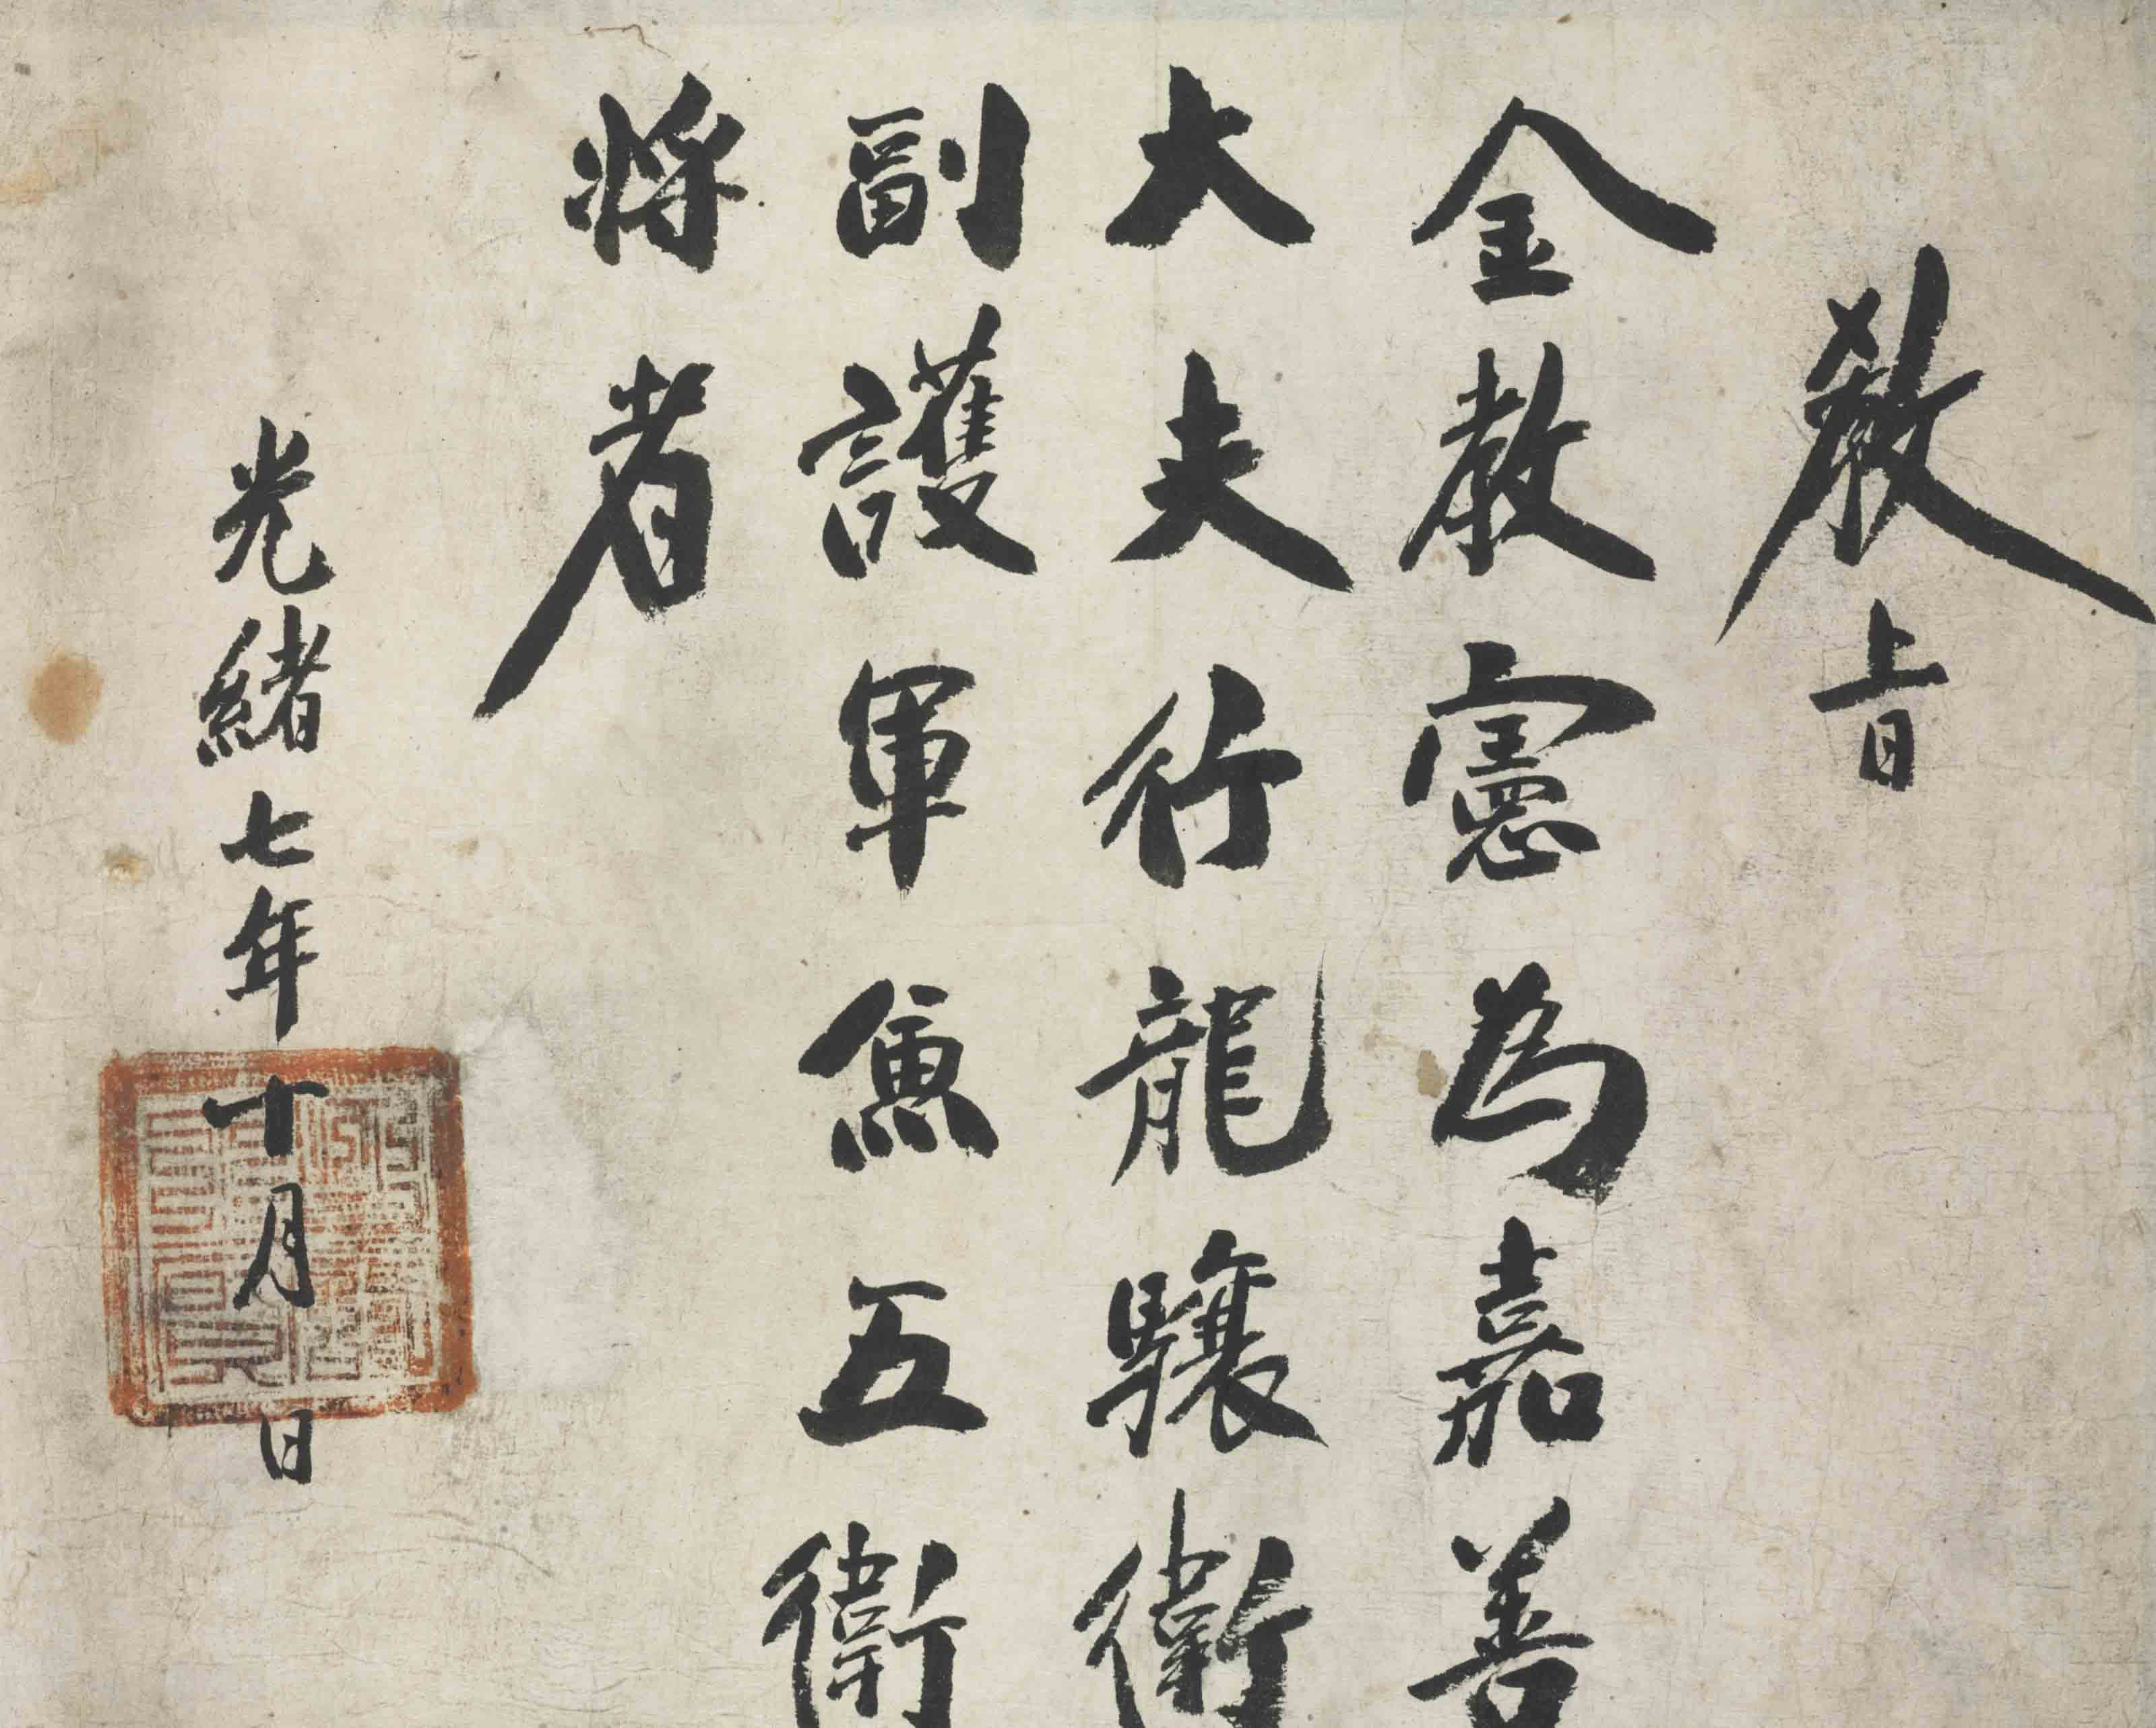 敎旨
金敎憲為嘉善
大夫行龍驤衛
副護軍魚五衛
將者
光緖七年十月日